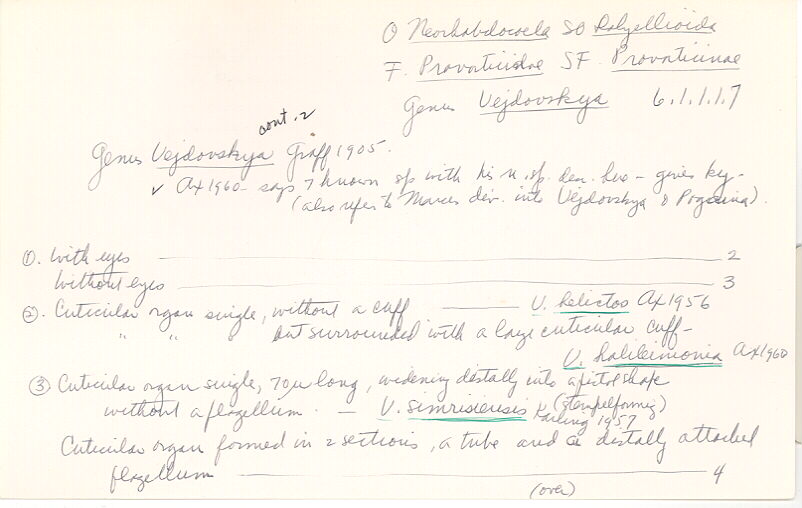 O Neorhabdocoela SO Dalyellioida
F. Provorticidae SF. Provorticinae
Genus Vejdovskya 6.1.1.1.7
cont. 2
Genus Vejdovskya Graff 1905.
✓ Ax 1960 - says 7 known sp with his n. sp. - gives key -
(also refers to Marcus div. into Vejdovskya & Pogaina).
①. With eyes 2
Without eyes 3
②. Cuticular organ single, without a cuff V. helictos Ax 1956
" " " but surrounded with a large cuticular cuff -
V. halileimonia Ax 1960
③ Cuticular organ single, 70µ long, widening distally into a pistol shape
without a flagellum. - V. simrisiensis Karling 1957 (stempelförmig)
Cuticular organ formed in 2 sections, a tube and a distally attached
flagellum 4
(over)